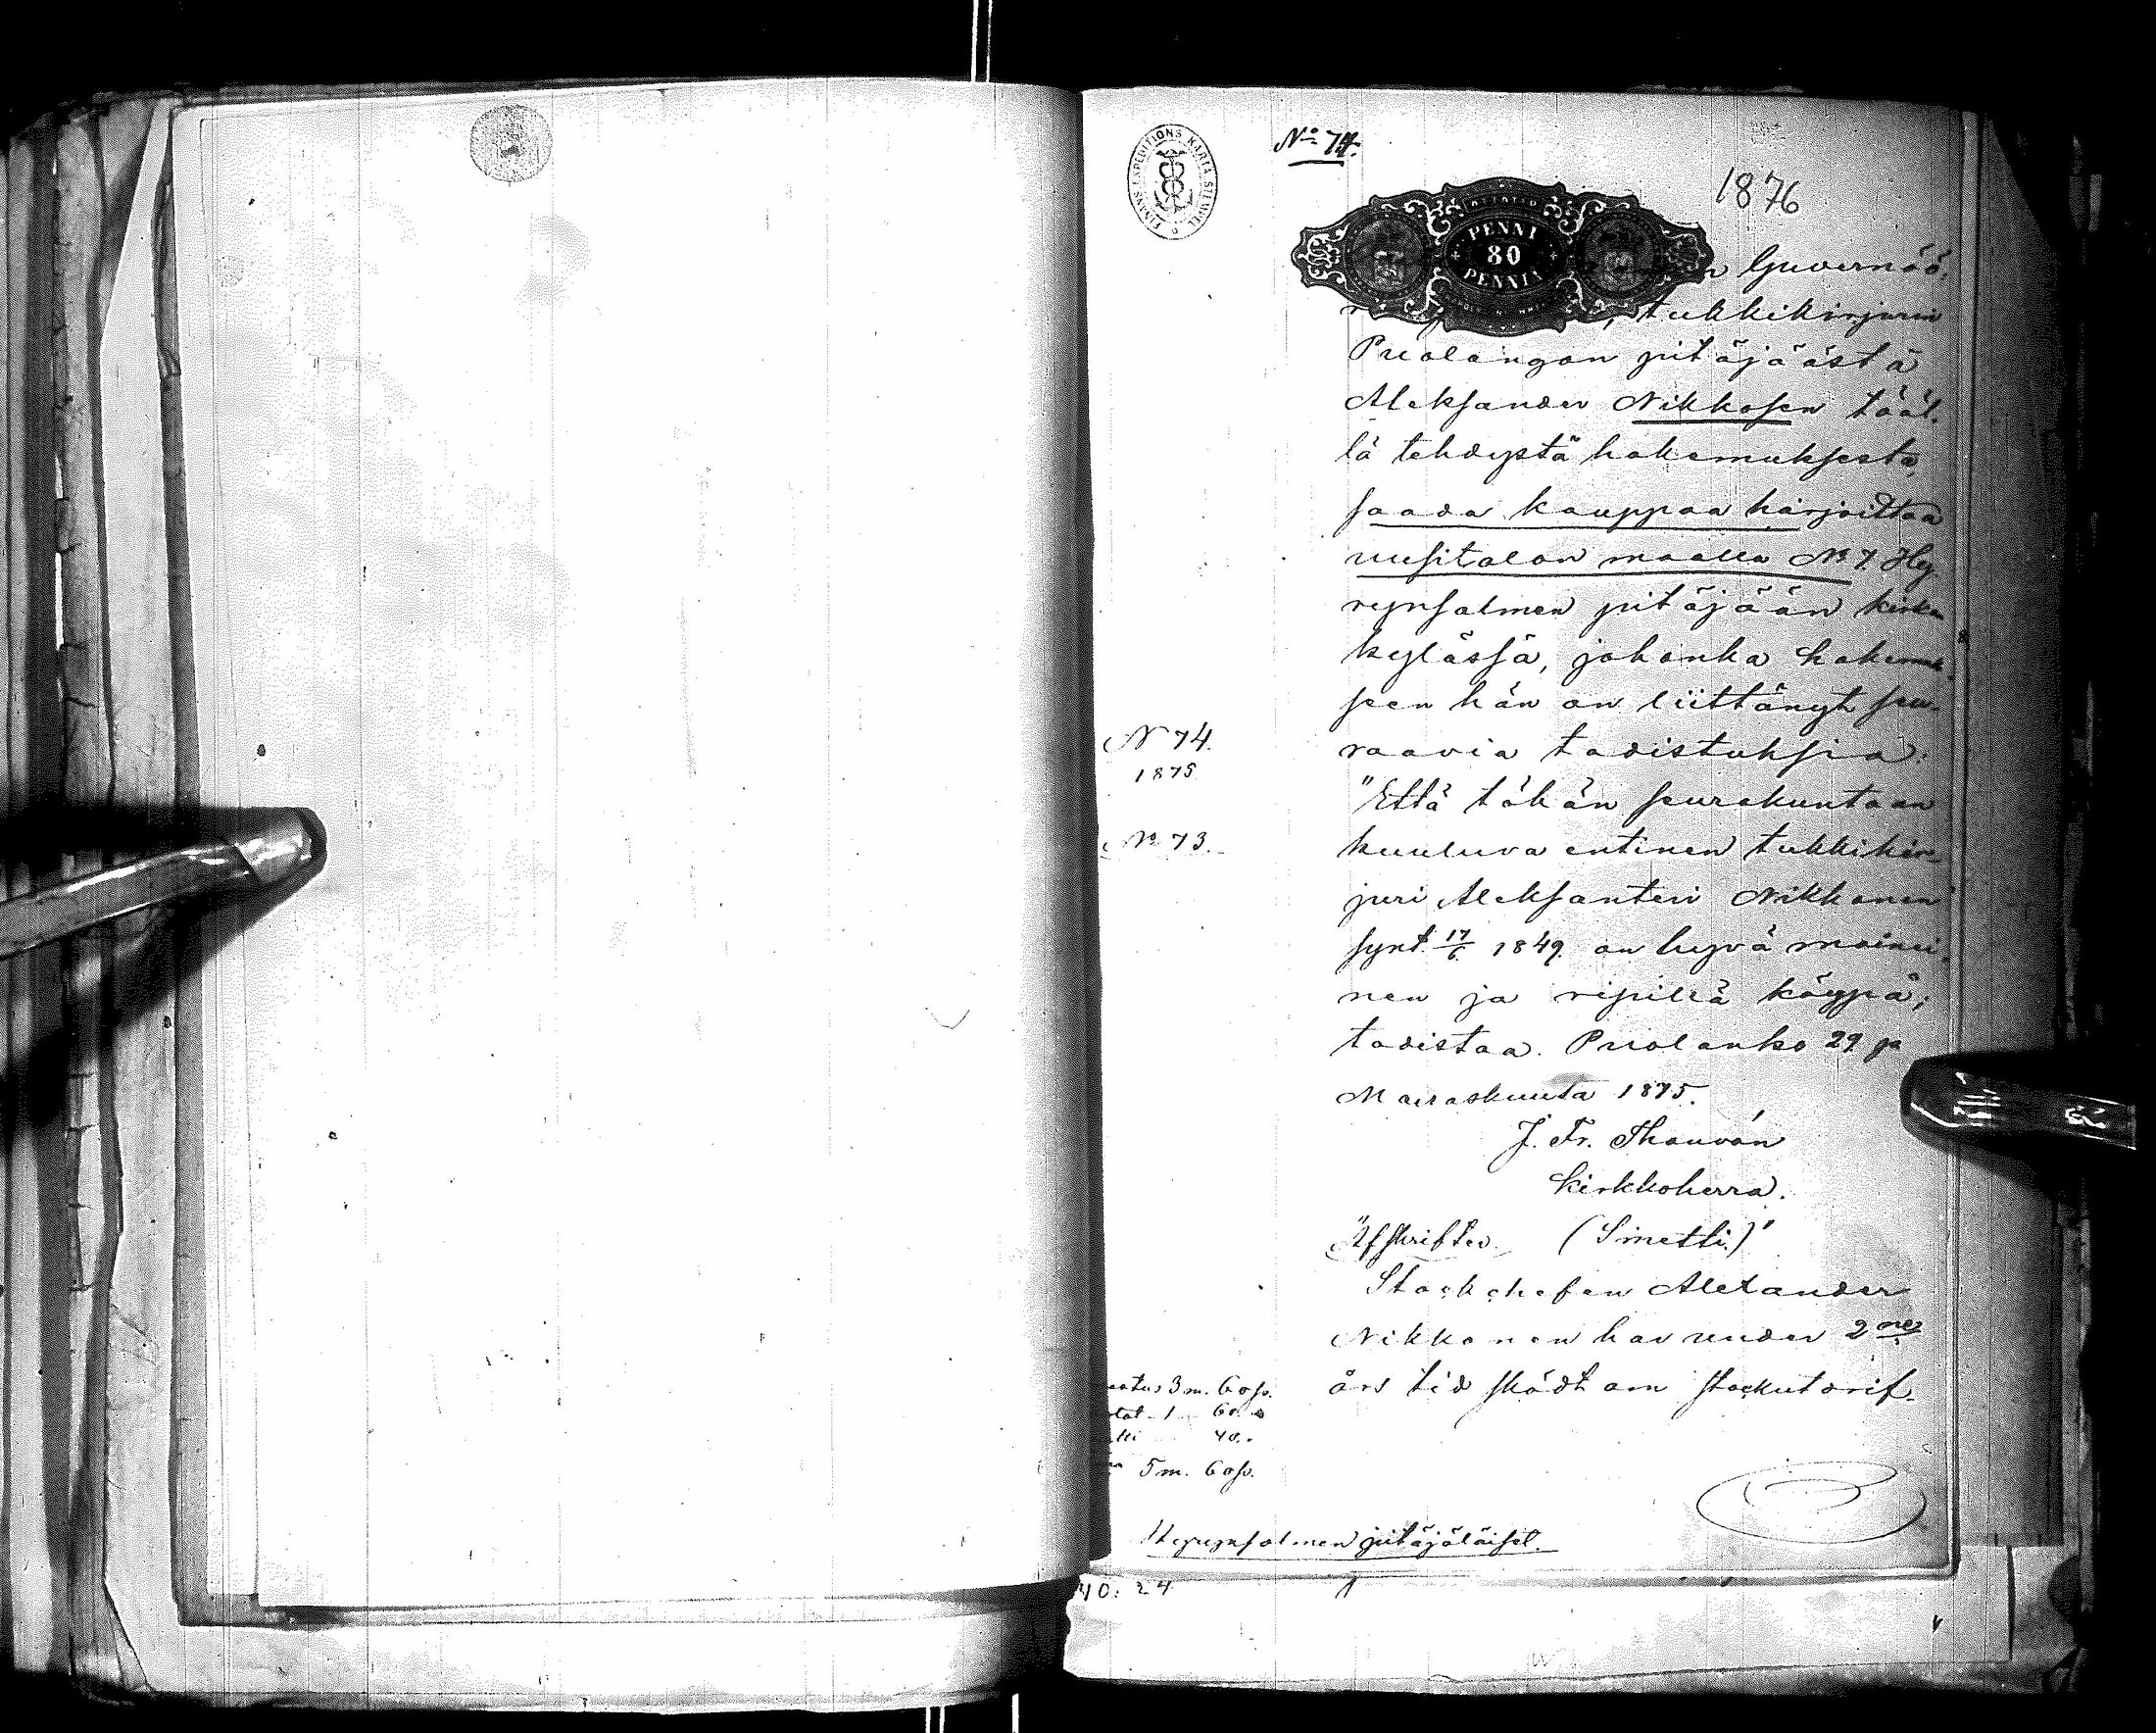 No 74.
1876
FINANS EXPEDITIONS KARTA STEMPEL
PENNI
80
PENNIÄ
Guvernöö-
tukkikirjurin
Puolangon pitäjäästä
Aleksander Nikkosen tääl-
lä tehdystä hakemuksesta
saada kauppaa harjoittaa
uusitalon maalla No 7 Hy-
rynsalmen pitäjään kirkon
kylässä, johonka hakemuk-
seen hän on liittänyt seu-
raavia todistuksia:
N 74.
1875
"Että tähän seurakuntaan
No 73.
kuuluva entinen tukkikir-
juri Aleksanteri Nikkonen
synt. 17/6 1849 on hyvä maini-
nen ja ripillä käypä;
todistaa. Puolanko 29 p
Marraskuuta 1875.
J. Fr. Thauvón
Kirkkoherra.
"Afskrifter. (Sinetti.)"
Stockchefen Alexander
Nikkonen har under 2ne
års tid sködt om stockutdrif-
3 m. 60 p.
1 60 "
40 "
5 m. 60 p.
Hyrynsalmen pitäjäläiset.
40: 24